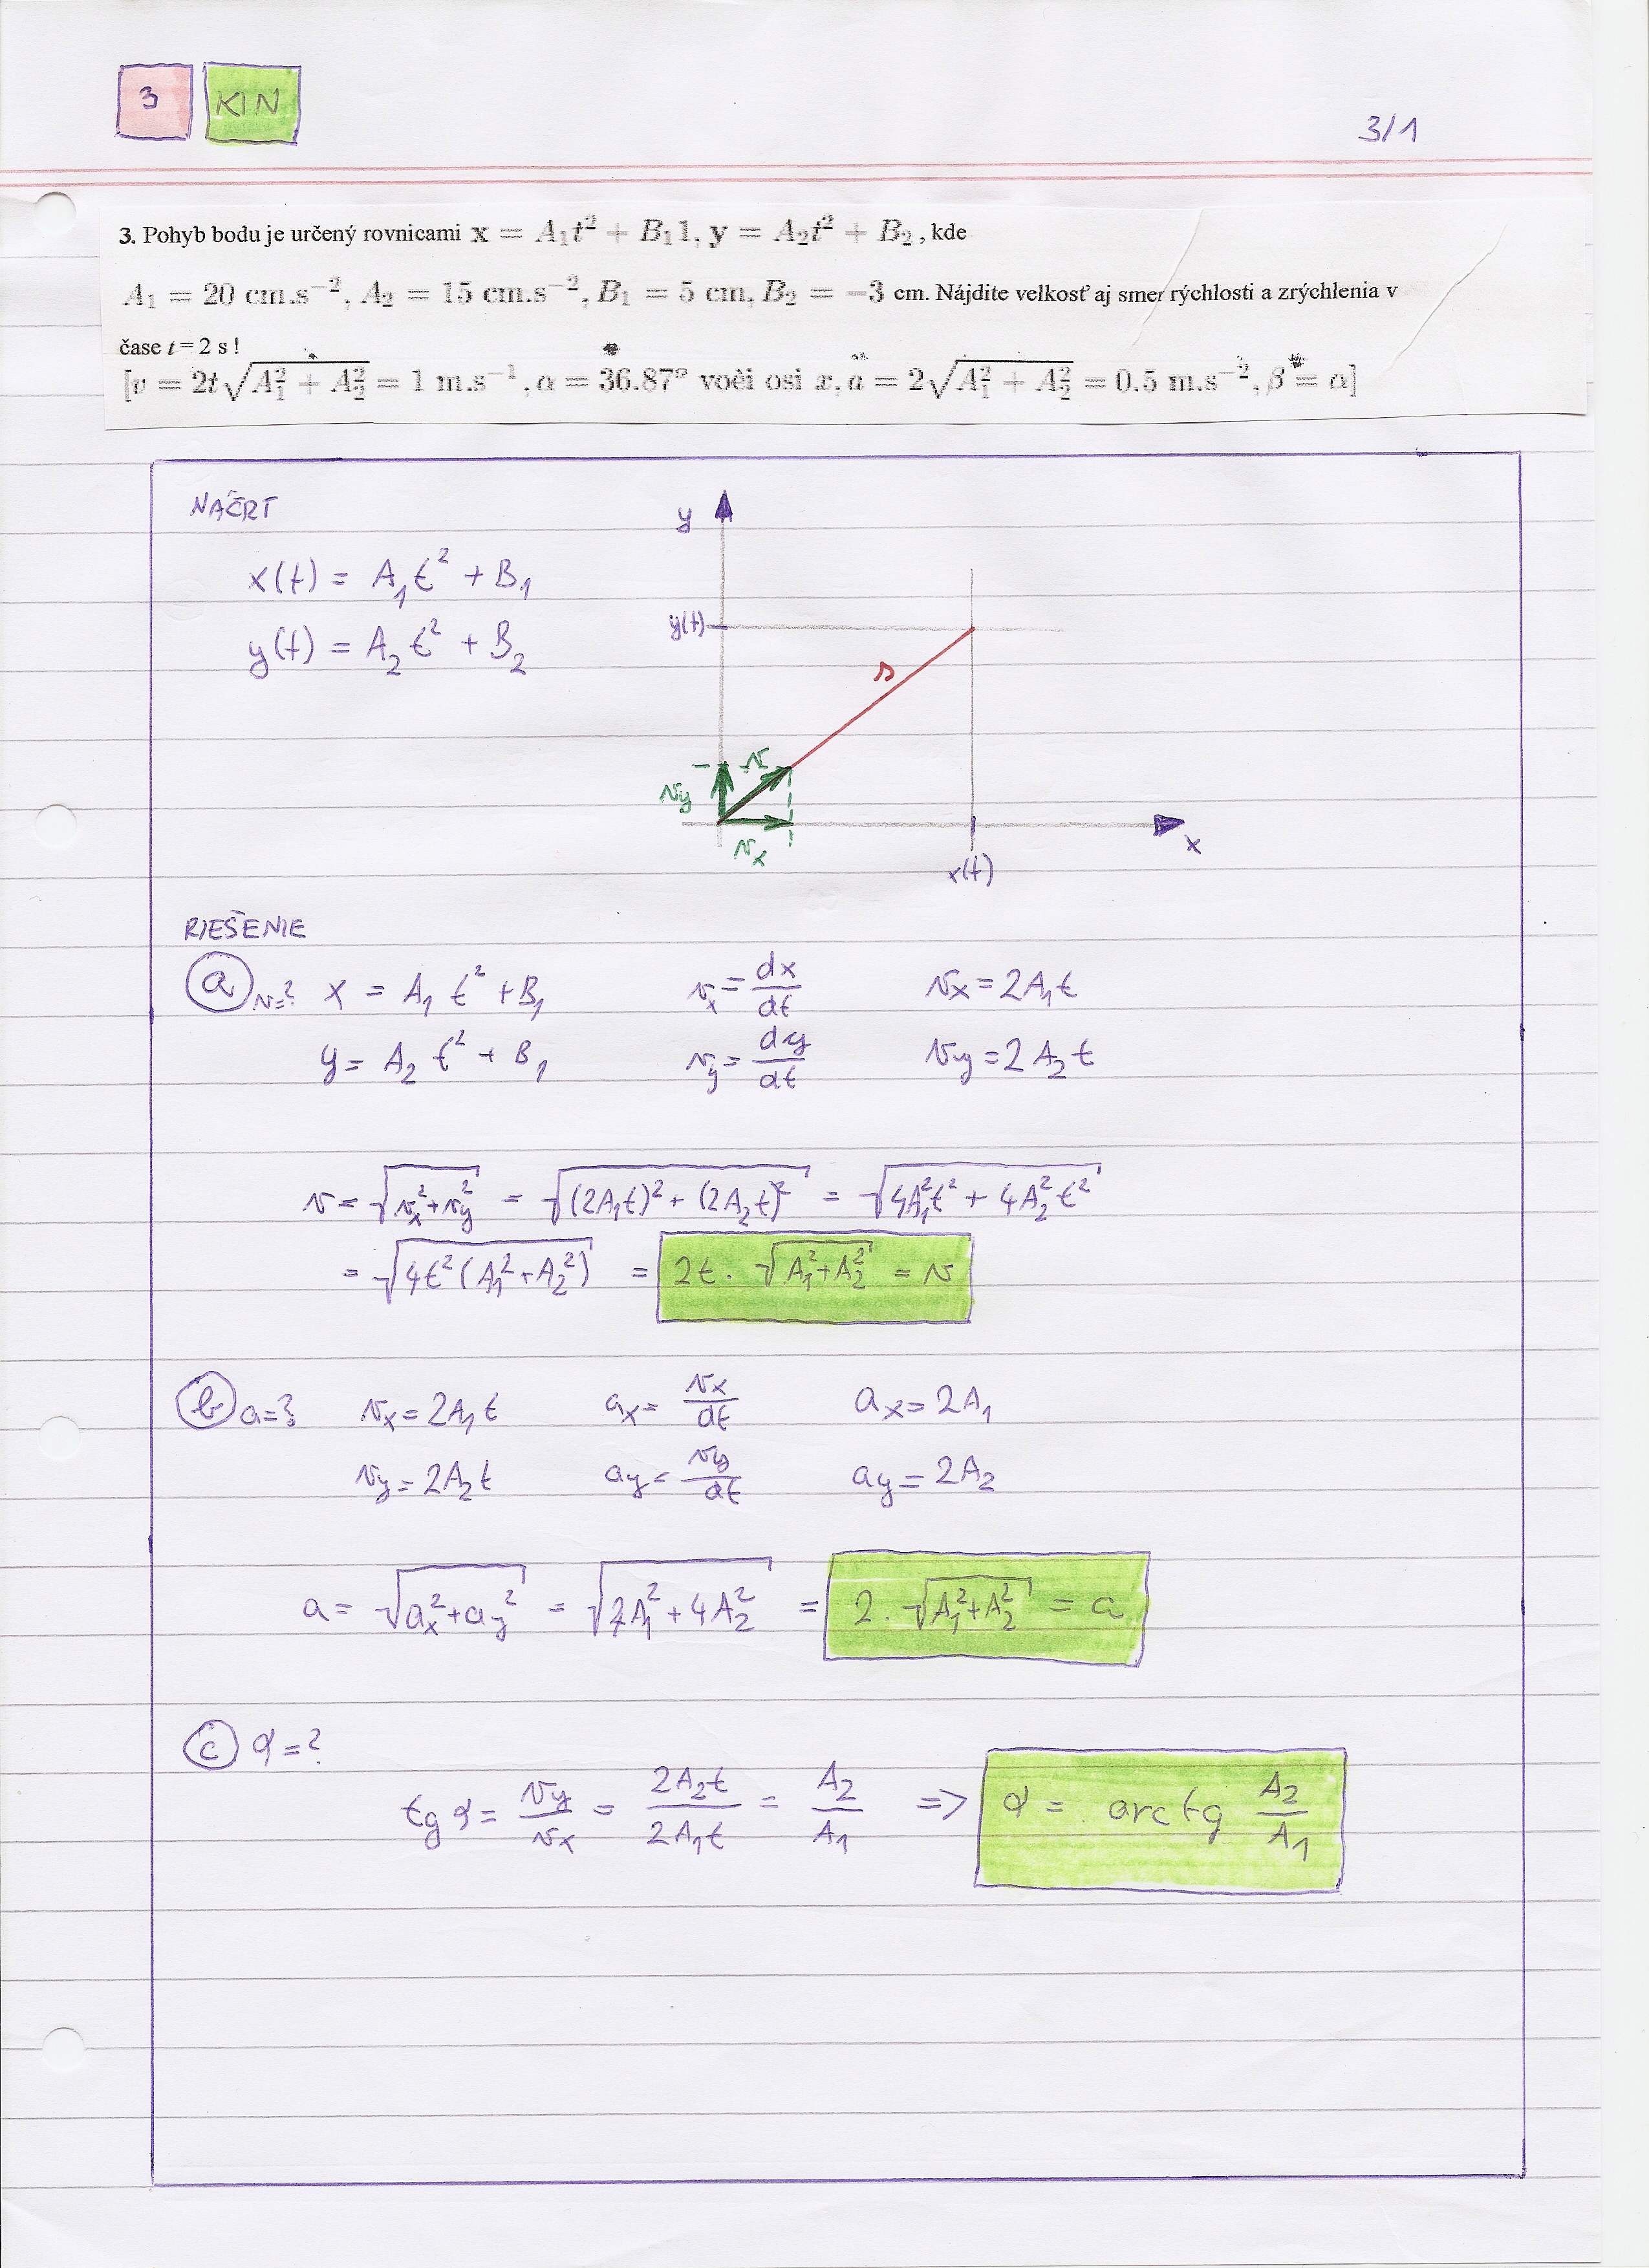 3 KIN
3/1
3. Pohyb bodu je určený rovnicami x = A₁t² + B₁1, y = A₂t² + B₂, kde
A₁ = 20 cm.s⁻², A₂ = 15 cm.s⁻², B₁ = 5 cm, B₂ = −3 cm. Nájdite velkosť aj smer rýchlosti a zrýchlenia v
čase t = 2 s !
[v = 2t√(A₁² + A₂²) = 1 m.s⁻¹, α = 36.87° voči osi x, a = 2√(A₁² + A₂²) = 0.5 m.s⁻², β = α]
NÁČRT
x(t) = A₁t² + B₁
y(t) = A₂t² + B₂
y
y(t)
s
v
vy
vx
x
x(t)
RIEŠENIE
a v=? x = A₁t² + B₁ vx = dx/dt vx = 2A₁t
y = A₂t² + B₁ vy = dy/dt vy = 2A₂t
v = √(vx² + vy²) = √((2A₁t)² + (2A₂t)²) = √(4A₁²t² + 4A₂²t²)
= √(4t²(A₁² + A₂²)) = 2t . √(A₁² + A₂²) = v
b a=? vx = 2A₁t ax = vx/dt ax = 2A₁
vy = 2A₂t ay = vy/dt ay = 2A₂
a = √(ax² + ay²) = √(4A₁² + 4A₂²) = 2 . √(A₁² + A₂²) = a
c α = ?
tg α = vy/vx = 2A₂t/2A₁t = A₂/A₁ => α = arctg A₂/A₁